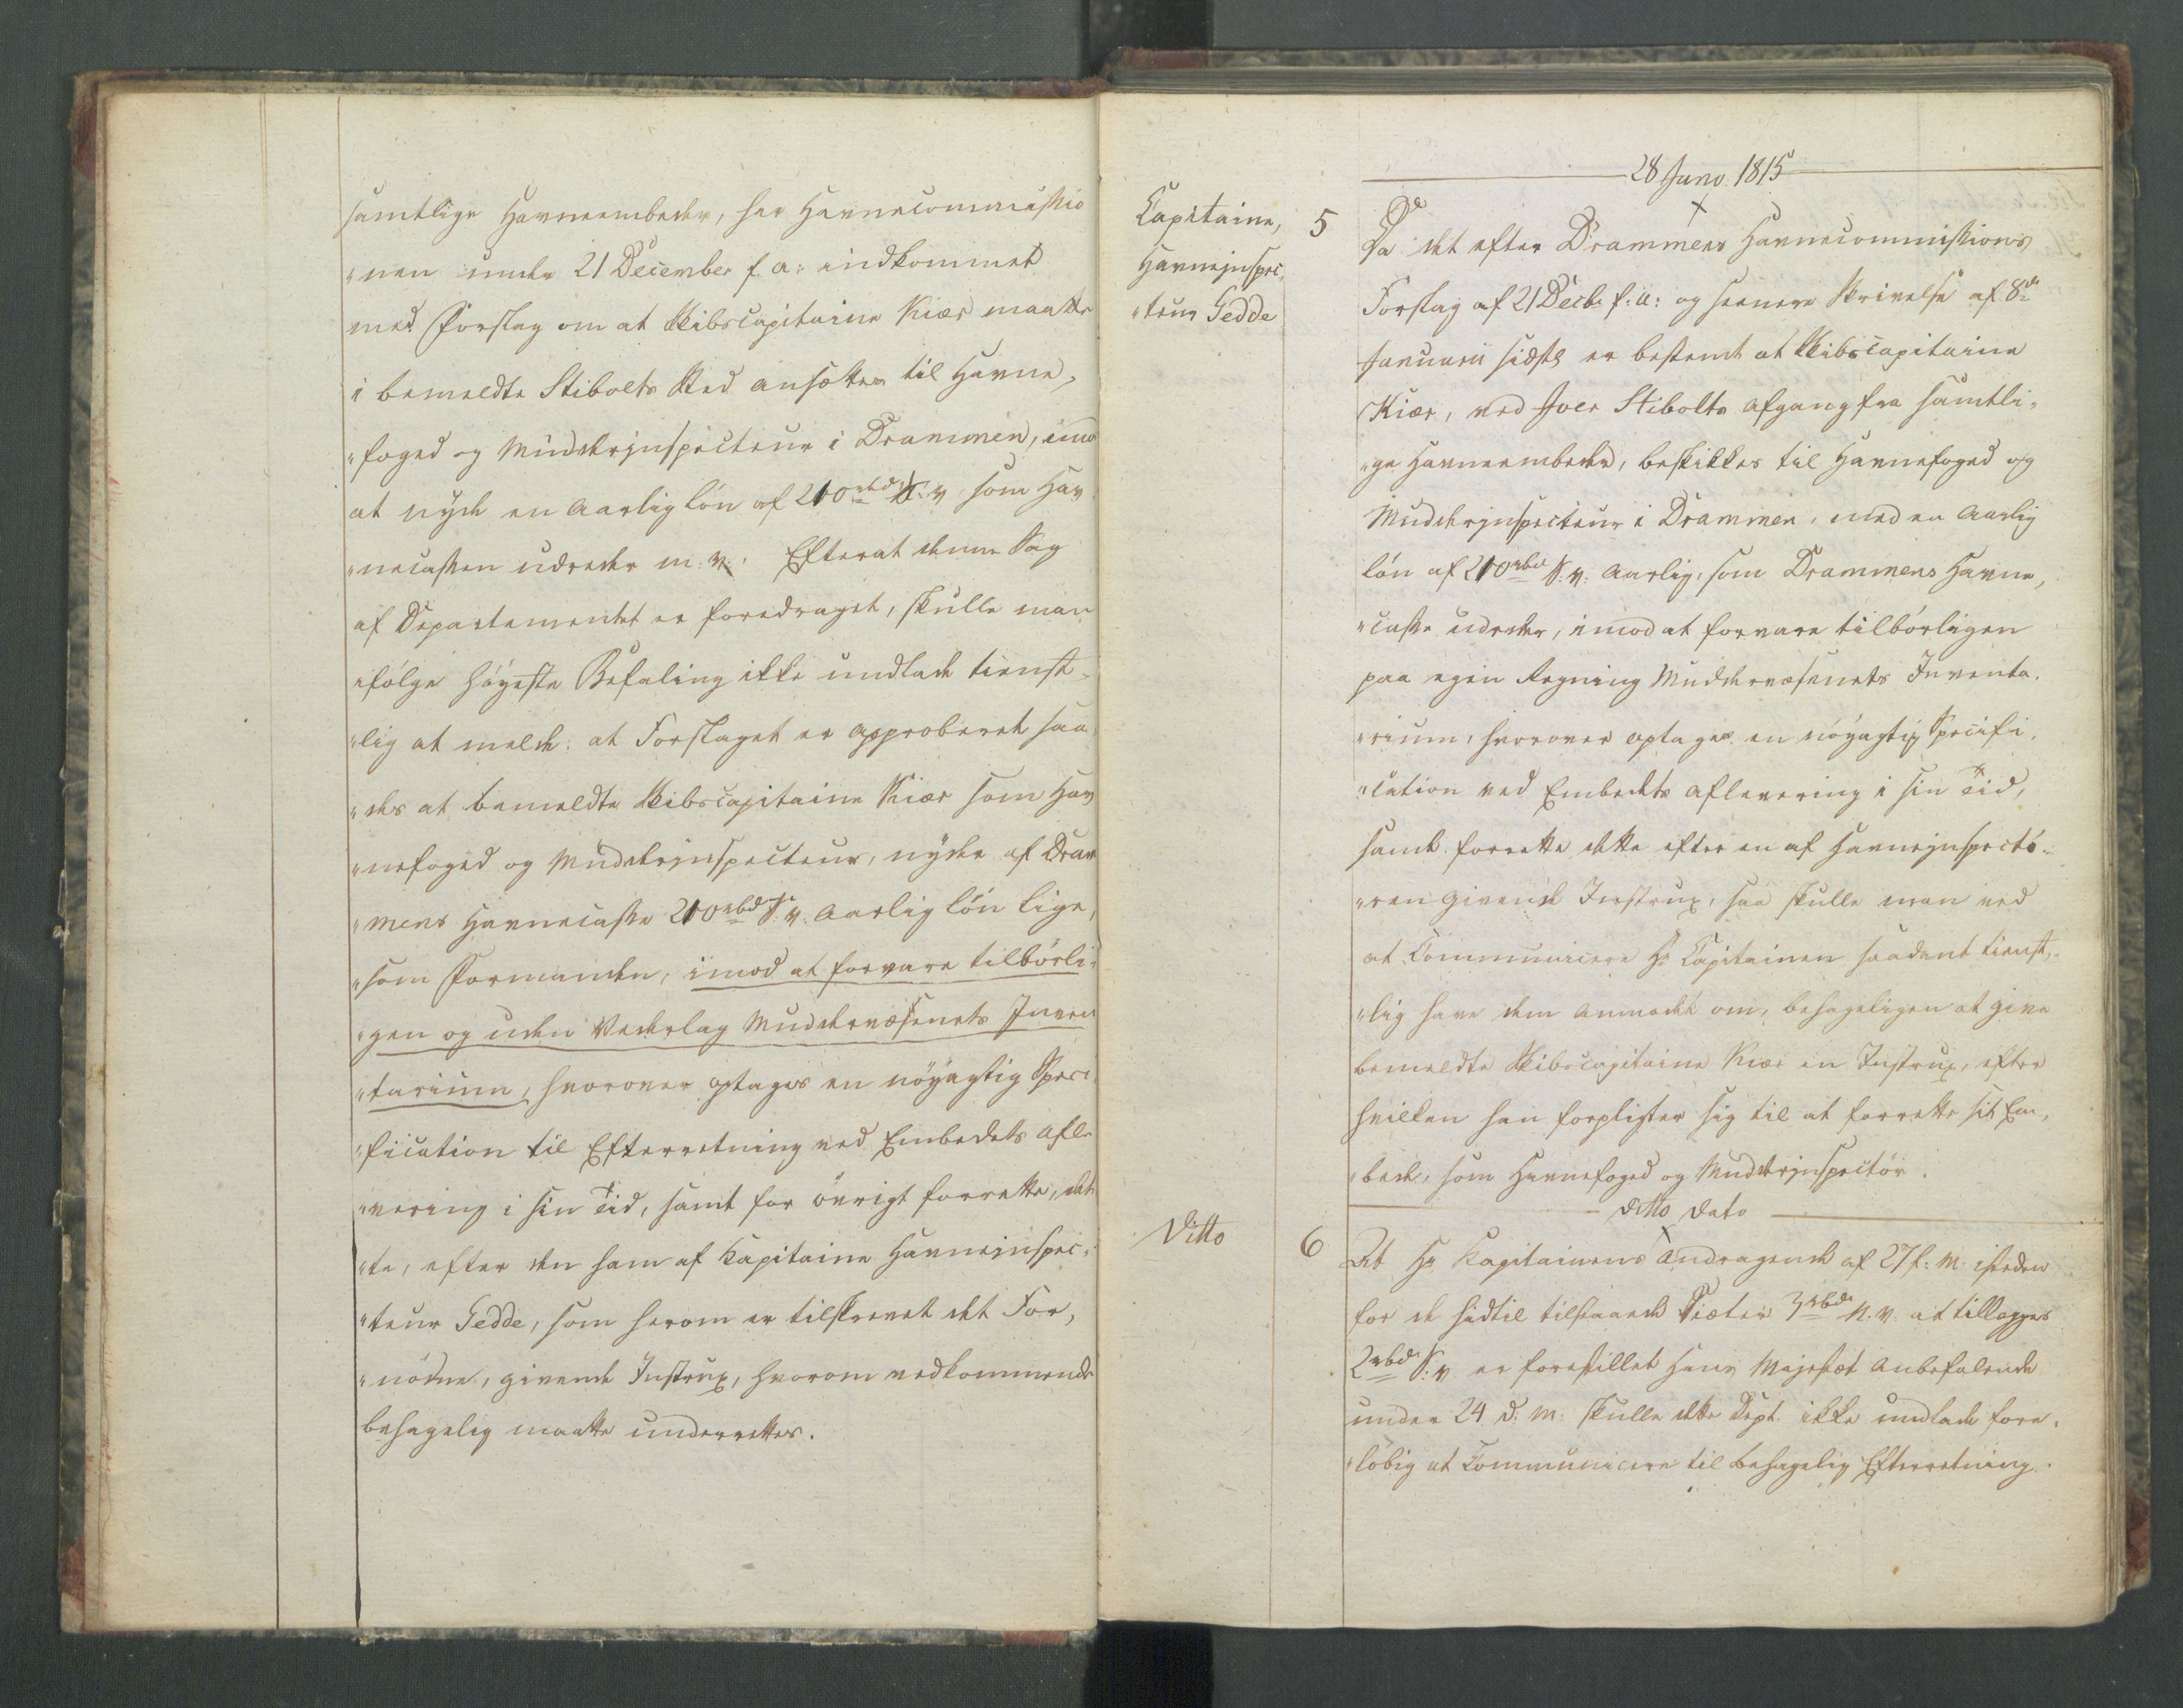 samtlige Havneembeder, har Havnecommissio
"nen under 21 December f. a: indkommet
med Forslag om at Skibscapitaine Kiær maatte
i bemeldte Stibolts Sted ansættes til Havne,
"foged og Mudderinspecteur i Drammen, imod
at nyde en aarlig lön af 210 rbd S. v. som Hav
"necassen udreder m. v. Efterat denne Sag
af Departementet er foredraget, skulle man
ifölge höyeste Befaling ikke undlade tienst-
"lig at melde: at Forslaget er approberet saa,
"des at bemeldte Skibscapitaine Kiær som Hav
"nefoged og Mudderinspecteur, nyder af Dram
"mens Havnecasse 210 rbd S. v. aarlig lön lige,
"som Formanden, imod at forvare tilbörli-
"gen og uden Vederlag Muddervæsenets Inven
"tarium, hvorover optages en nöyagtig Speci
"fication til Efterretning ved Embedets afle
"vering i sin Tid, samt for övrigt forrette, det
"te, efter den ham af Kapitaine Havneinspec-
"teur Gedde, som herom er tilskrevet det For,
"nödne, givende Instrux, hvorom vedkommende
behagelig maatte underrettes.
28 Janv. 1815
Capitaine,
Havneinspec,
"teur Gedde
5
Da det efter Drammens Havnecommissions
Forslag af 21 Decbr f: a: og seenere Skrivelse af 8de
Januarii sidstl er bestemt at Skibscapitaine
Kiær, ved Iver Stibolts afgang fra samtli,
"ge Havneembeder, beskikkes til Havnefoged og
Mudderinspecteur i Drammen, med en aarlig
lön af 210 rbd S. v. aarlig, som Drammens Havne,
"casse udreder, imod at forvare tilbörligen
paa egen Regning Muddervæsenets Inventa,
"rium, hvorover optages en nöyagtig Specifi,
"cation ved Embedets aflevering i sin Tid,
samt forrette dette efter en af Havneinspectö-
"ren givende Instrux, saa skulle man ved
at Communicere Hr Capitainen saadant tienst,
"lig have dem anmodet om, behageligen at give
bemeldte Skibscapitaine Kiær en Instrux, efter
hvilken han forpligter sig til at forrette sit Em,
"bede, som Havnefoged og Mudderinspectör.
ditto Dato
Ditto
6
At Hr Kapitainens Andragende af 27 f: M. istedenfor
for de hidtil tilstaaede Diæter 3 rbd N. v. at tillægges
2 rbd S. v er forestillet Hans Majestæt anbefalende
under 24 d: M: skulle dette Dept. ikke undlade fore,
"löbig at Communicere til behagelig Efterretning.